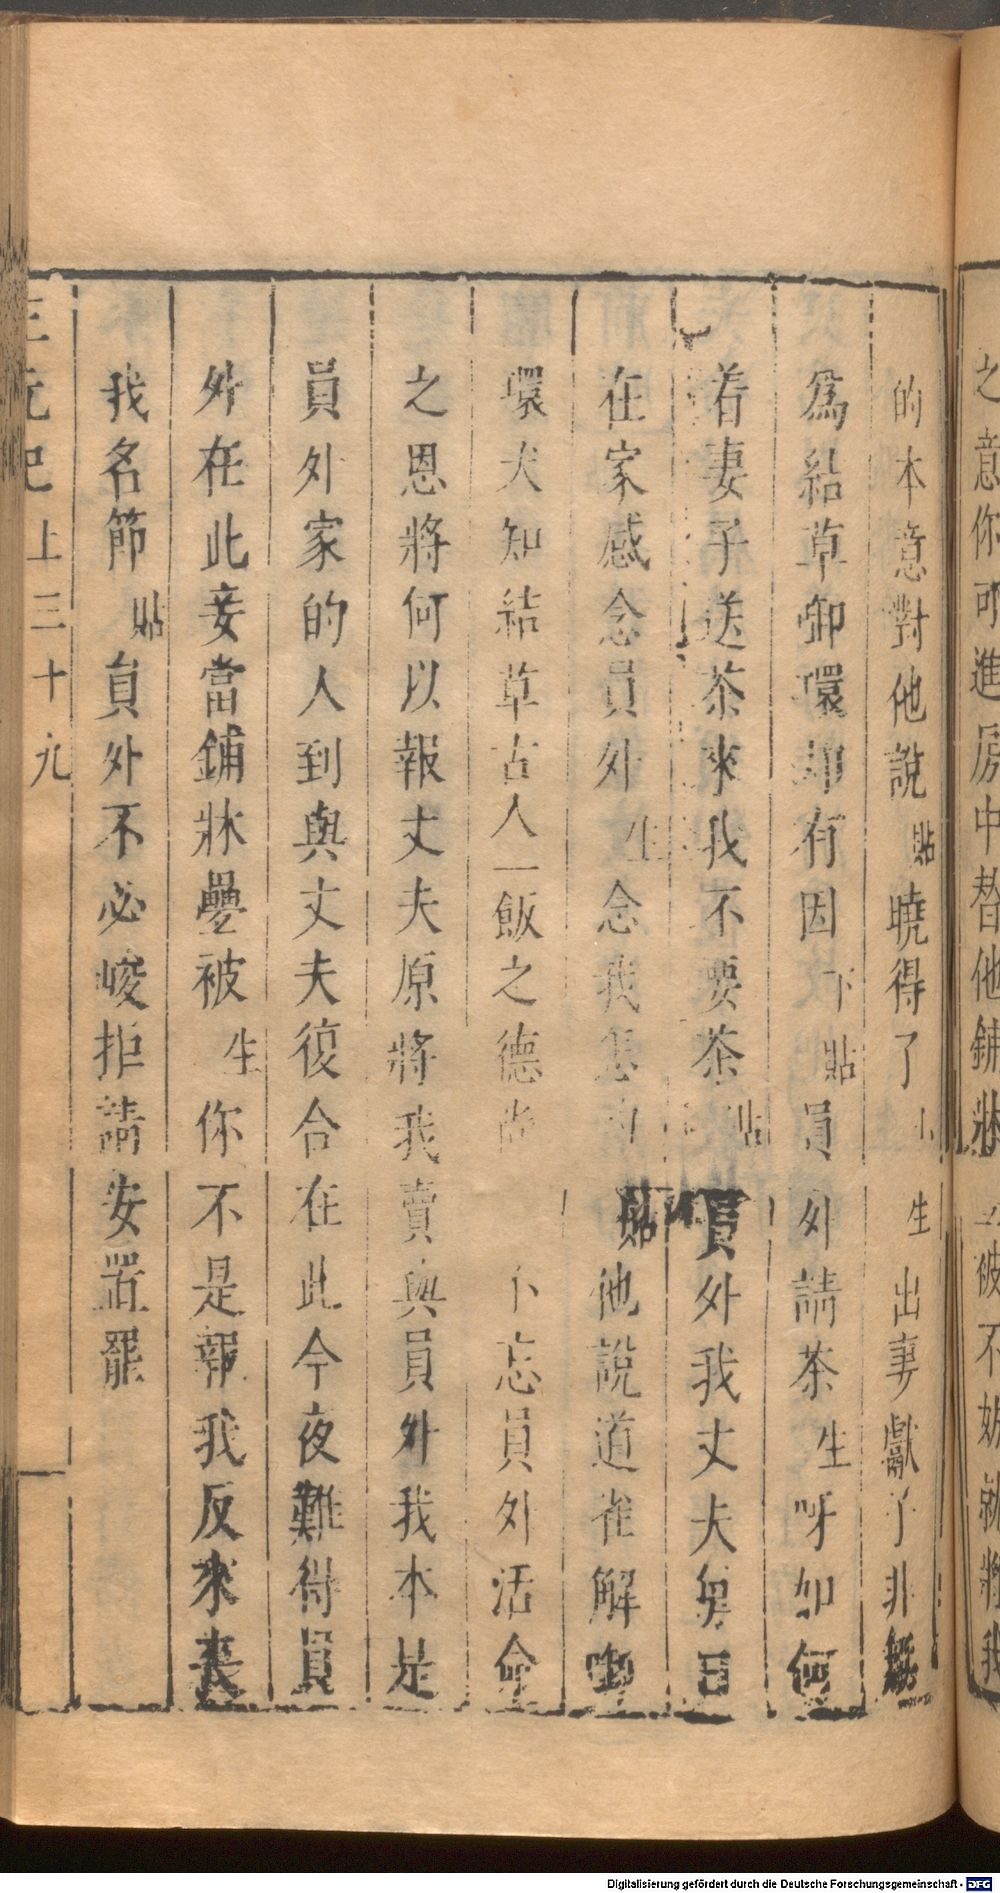 之意你可進房中替他鋪牀 被不妨就將我
的本意對他說貼曉得了 生出妻獻子非
爲結草啣環却有因下貼員外請茶生呀如何
着妻子送茶來我不要茶貼員外我丈夫每日
在家感念員外生念我怎的貼他說道雀解啣
環犬知結草古人一飯之德尚 不忘員外活命
之恩將何以報丈夫原將我賣與員外我本是
員外家的人到與丈夫復合在此今夜難得員
外在此妾當鋪牀疊被生你不是報我反來喪
我名節貼員外不必峻拒請安置罷
三元記上三十九
Digitalisierung gefördert durch die Deutsche Forschungsgemeinschaft - DFG